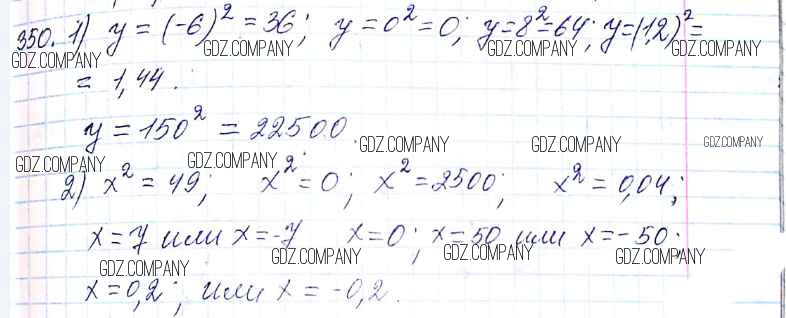 350. 1) y = (-6)² = 36; y = 0² = 0; y = 8² = 64; y = (1,2)² =
GDZ.COMPANY GDZ.COMPANY GDZ.COMPANY GDZ.COMPANY
= 1,44.
y = 150² = 22500.
GDZ.COMPANY GDZ.COMPANY GDZ.COMPANY
GDZ.COMPANY GDZ.COMPANY
2) x² = 49; x² = 0; x² = 2500; x² = 0,04;
x = 7 или x = -7 x = 0; x = 50 или x = -50.
GDZ.COMPANY GDZ.COMPANY GDZ.COMPANY GDZ.COMPANY
x = 0,2; или x = -0,2.